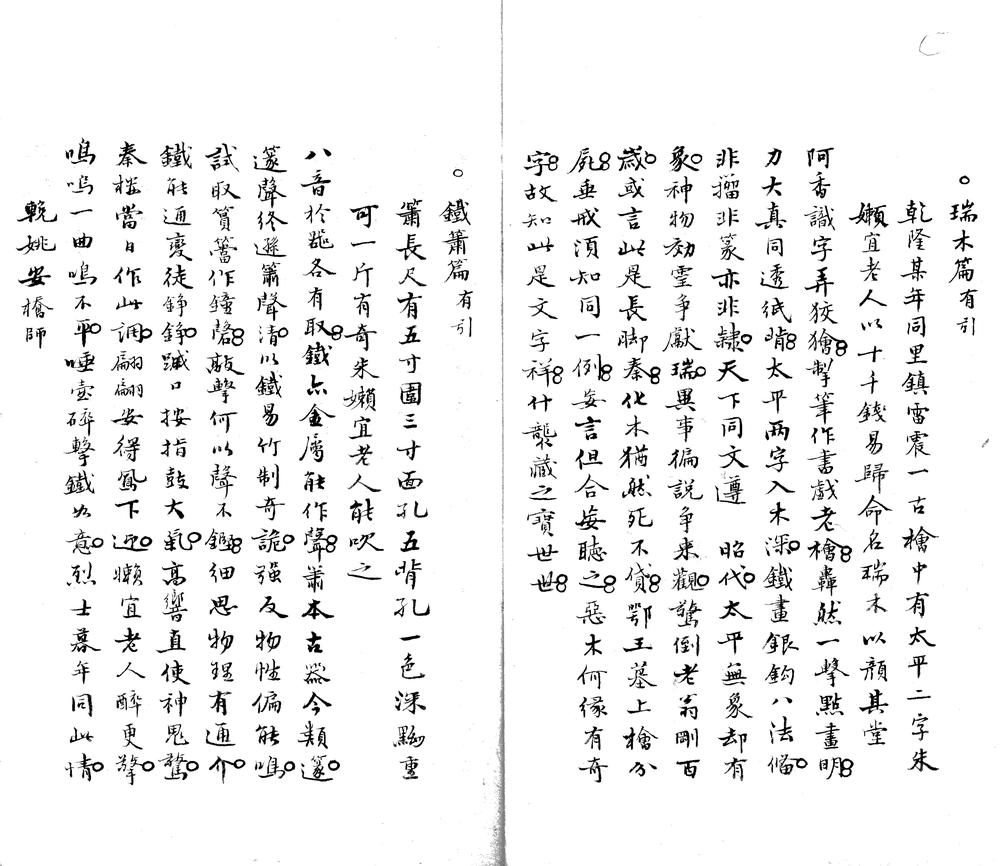 瑞木篇有引
乾隆某年同里鎮雷震一古檜中有太平二字朱
嬾宜老人以十千錢易歸命名瑞木以顏其堂
阿香識字弄狡獪掣筆作書戲老檜轟然一擊點畫明
力大真同透紙背太平兩字入木深鐵畫銀鈎八法備
非籀非篆亦非隸天下同文遵 昭代太平無象却有
象神物効靈爭獻瑞異事徧説爭來觀驚倒老翁剛百
歲或言此是長脚秦化木猶然死不貸鄂王墓上檜分
屍垂戒須知同一例妄言但合妄聽之惡木何緣有奇
字故知此是文字祥什襲藏之寶世世
鐵簫篇有引
簫長尺有五寸圍三寸面孔五背孔一色深黝重
可一斤有奇朱嬾宜老人能吹之
八音於器各有取鐵亦金屬能作聲簫本古器今類篴
篴聲終遜簫聲清以鐵易竹制奇詭强反物性偏能鳴
試取簨簴作鐘磬敲擊何以聲不鏗細思物理有通介
鐵能通變徒錚錚蹴口按指鼓大氣高響直使神鬼驚
秦樓當日作此調翩翩安得鳳下迎嬾宜老人醉更擎
嗚嗚一曲鳴不平唾壺碎擊鐵如意烈士暮年同此情
輓姚安橋師